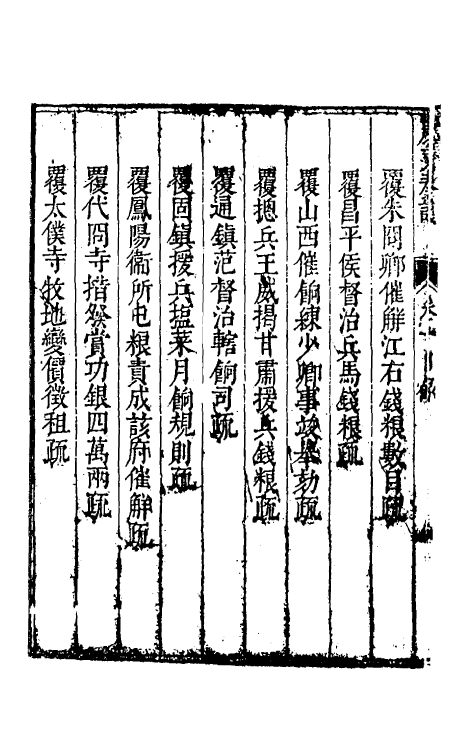 覆朱囧卿催解江右錢粮數目疏
覆昌平侯督治兵馬錢粮疏
覆山西催餉練少卿事竣舉劾疏
覆摠兵王威揭甘肅援兵錢粮疏
覆通鎮范督治轄餉司疏
覆固鎮援兵塩菜月餉規則疏
覆鳳陽衞所屯粮責成該府催解疏
覆代冏寺揩發賞功銀四萬兩疏
覆太僕寺牧地變價徵租疏